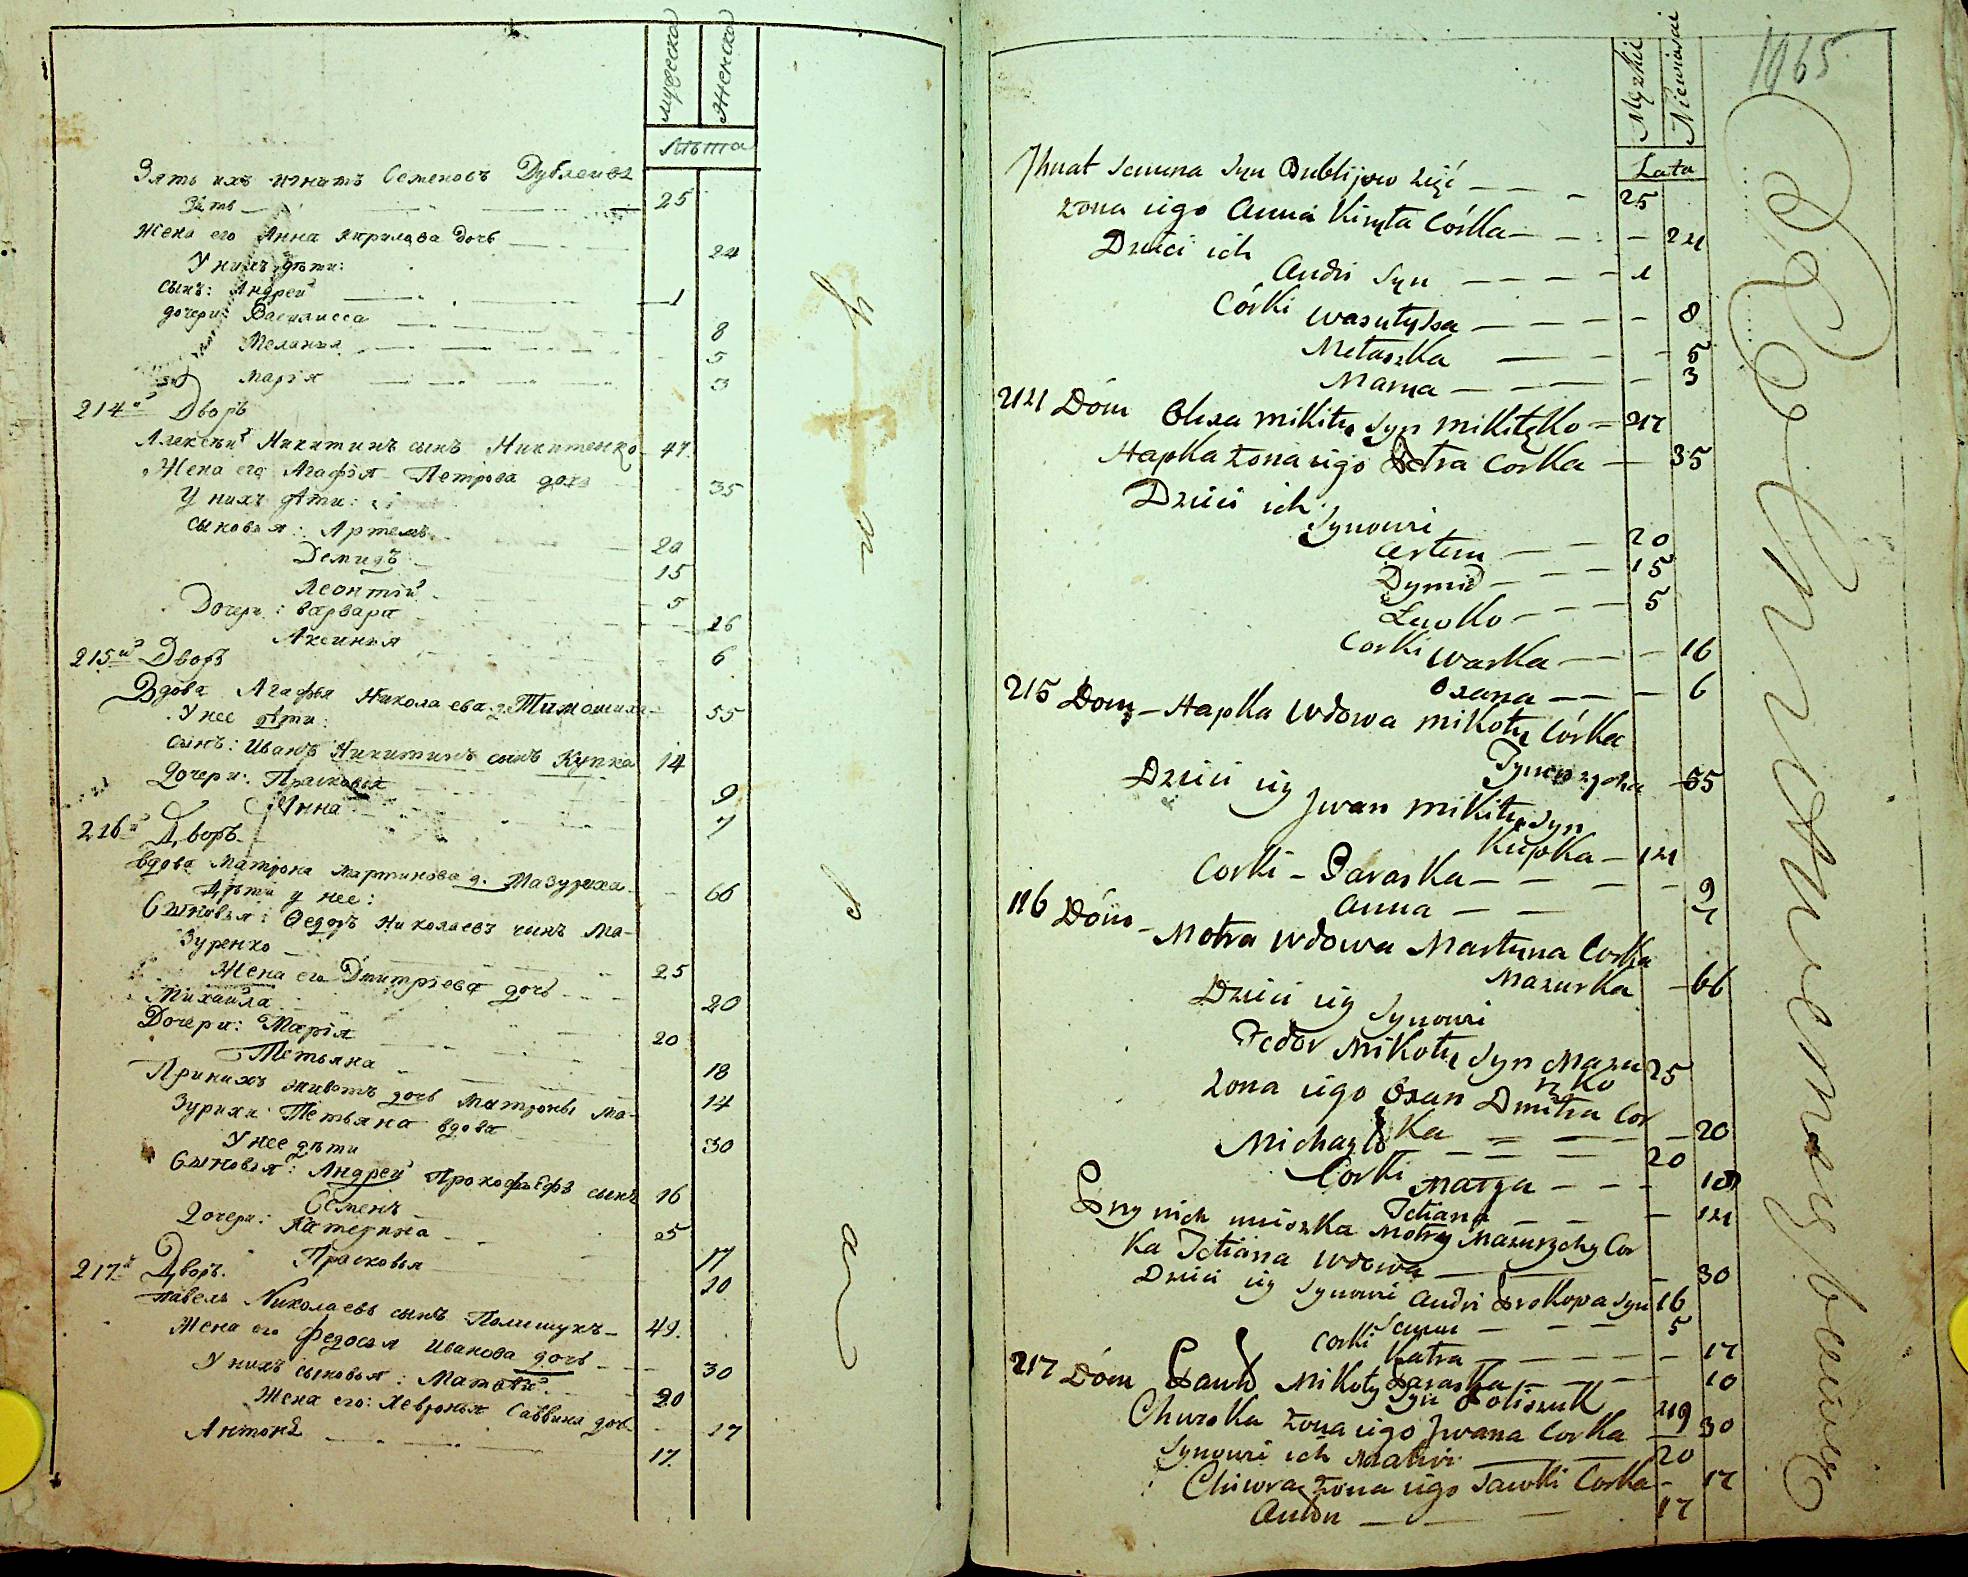 мужеска
женска
Лѣта
Зять ихъ Игнатъ Семеновъ
Зять 25
Жена его Анна Кирилова дочь 24
У нихъ дѣти:
сынъ: Андрей 1
дочери: Василисса 8
Меланья 5
Марiя 3
214й Дворъ
Алексѣй Никитинъ сынъ Никитенко 47.
Жена его Агафiя Петрова дочь 35
У нихъ дѣти:
сыновья: Артемъ 20
Демидъ 15
Леонтiй 5
Дочери: Варвара 16
Аксинья 6
215й Дворъ
Вдова Агафья Николаева д. Тимошиха 55
У нее дѣти:
сынъ: Иванъ Никитинъ сынъ Купка 14
Дочери: Прасковья 9
Анна 7
216й Дворъ
Вдова Матрона Мартинова д. Мазуриха 66
Дѣти у нее:
Сыновья: Ѳедоръ Николаевъ сынъ Ма-
зуренко 25
Жена его Дмитрiева дочь 20
Михайла 20
Дочери: Марiя 18
Тетьяна 14
При нихъ живетъ дочь Матроны Ма-
зурихи Тетьяна вдова 30
У нее дѣти
Сыновья: Андрей Прокофьевъ сынъ 16
Семенъ 5
Дочери: Катерина 17
Прасковья 10
217й Дворъ.
Павелъ Николаевъ сынъ Полищукъ 49.
Жена его Федосья Иванова дочь 30
У нихъ сыновья: Матвѣй 20
Жена его: Хевронья Саввина дочь 17
Антонъ 17.
1065
Męzkie
Niewieście
Lata
Ihnat Semena Syn Bublijow Zięć 25
Żona iego Anna Kiryła Córka 24
Dzieci ich
Andri Syn 1
Córki Wasulyssa 8
Melaszka 5
Marya 3
214 Dóm Olexa Mikity Syn Mikitęko 47
Hapka Żona iego Petra Corka 35
Dzieci ich
Synowie
Artem 20
Dymid 15
Lewko 5
Corki Warka 16
Oxana 6
215 Dom Hapka Wdowa Mikoły Córka
Tymoszycha 55
Dzieci iey Jwan Mikity Syn
Kupka 14
Corki Paraska 9
Anna 7
116 Dóm Motra Wdowa Martyna Corka
Mazurka 66
Dzieci iey Synowie
Fedor Mikoły Syn Mazu 25
rzko
Żona iego Oxan Dmitra Cor
ka 20
Michayło 20
Corki Marya 18
Tetiana 14
Przy nich mieszka Motry Mazurzchy Cor
ka Tetiana Wdowa 30
Dzieci iey Synowie Andri Prokopa Syn 16
Semen 5
Corki Katra 17
Paraska 10
217 Dóm Pawło Mikoły Syn Poliszuk 49
Chweska Żona iego Jwana Corka 30
Synowie ich Matwi 20
Chiwra Żona iego Sawki Corka 17
Anton 17